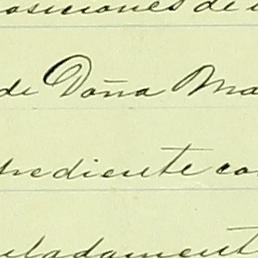 osiciones de
de Doña Ma
pediente co
uladament